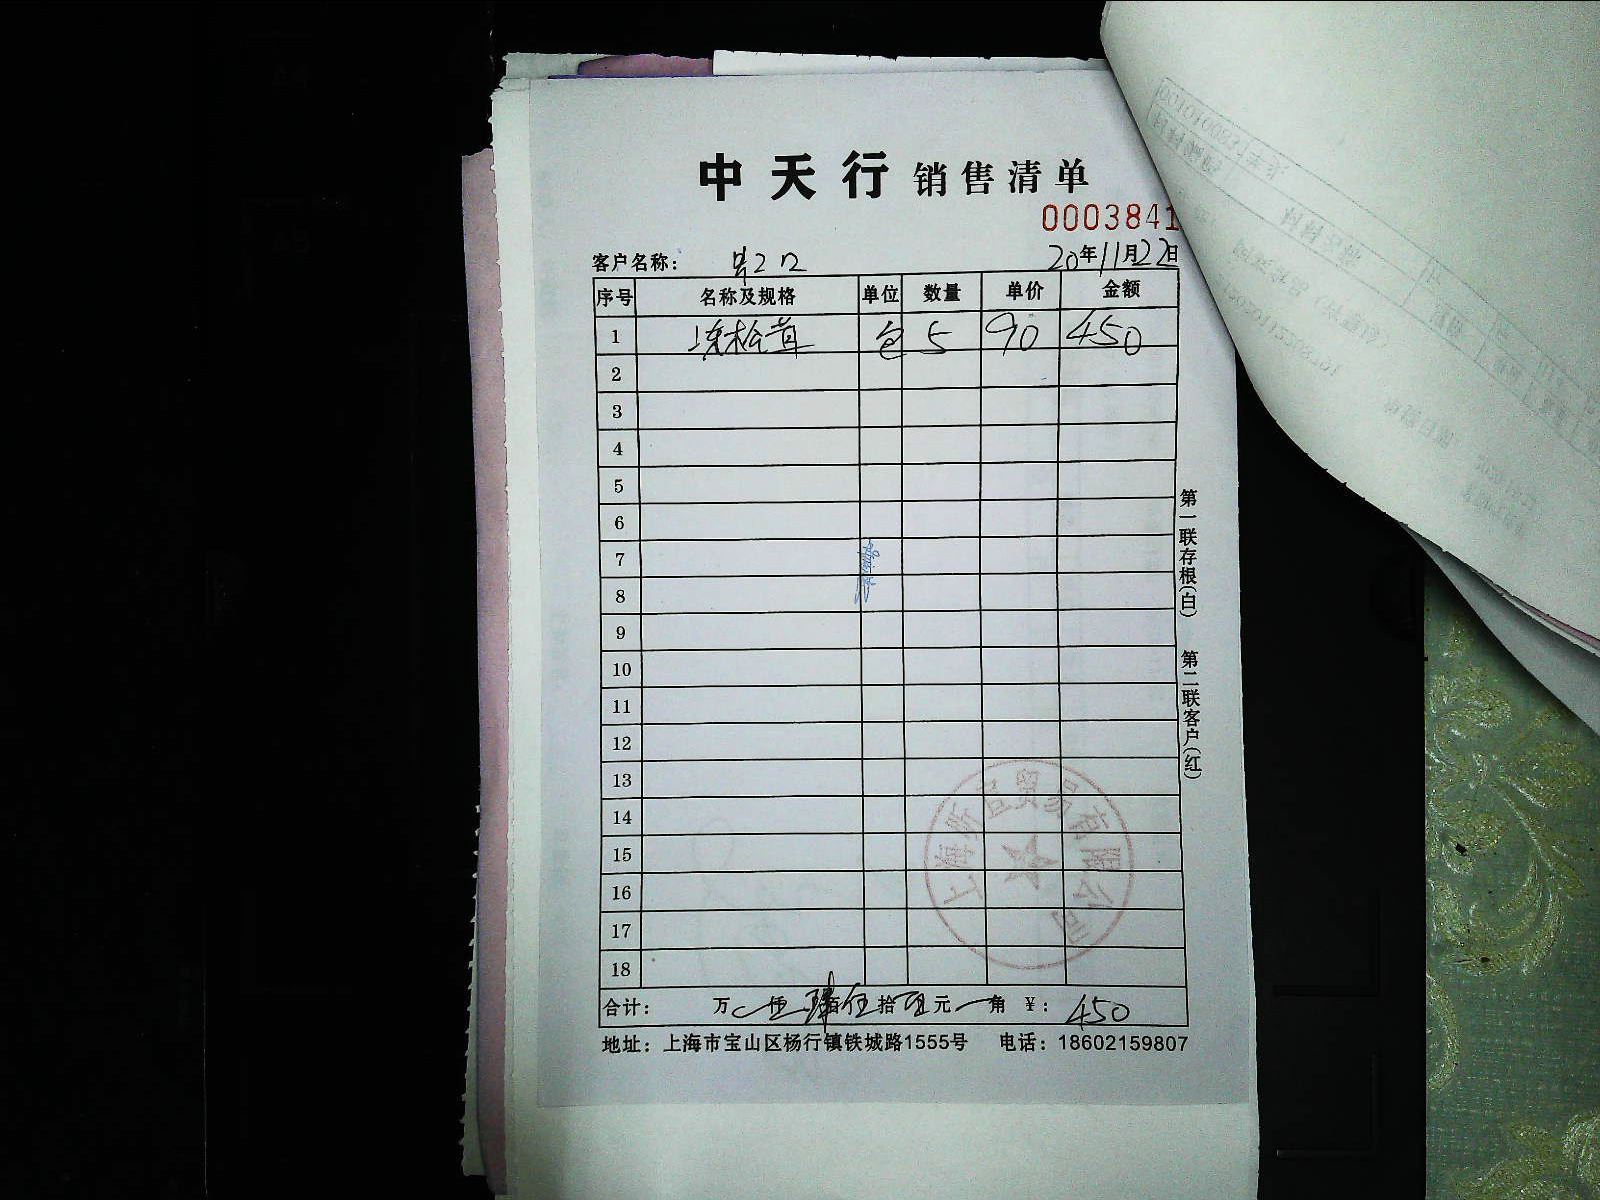 中天行 销售清单
0003841
客户名称： 20年11月22日
序号 名称及规格 单位 数量 单价 金额
1 冻松茸 包 5 90 450
2
3
4
5
6
7
8
9
10
11
12
13
14
15
16
17
18
合计： 万 仟 肆佰伍拾 元 角 ¥： 450
地址：上海市宝山区杨行镇铁城路1555号 电话：18602159807
第一联存根(白) 第二联客户(红)
贸易有限公司